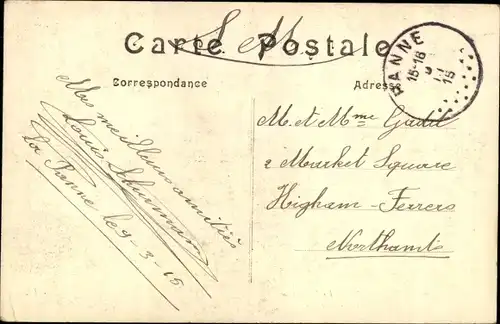 S. M.
Carte Postale
Correspondance
Adresse
PANNE
15-16
15
Mes meilleures amitiés
Louis
La Panne le 9-3-15
M. et Mme
2 Market Square
Higham-Ferrers
Northants